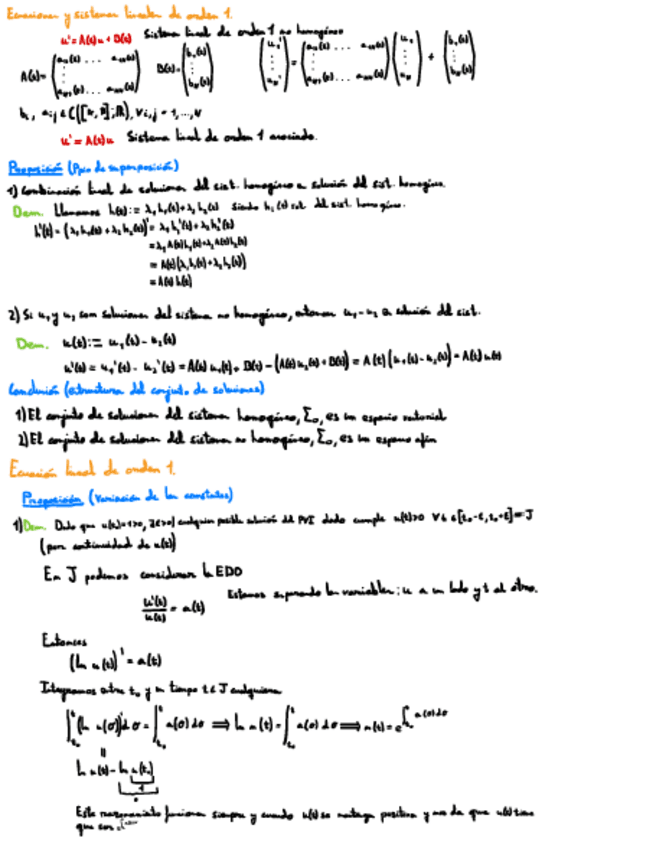 Ecuaciones y sistemas lineales de orden 1.
u' = A(t)u + B(t) Sistema lineal de orden 1 no homogéneo
A(t) = (a₁₁(t) ... a₁ₙ(t) ⋮ aₙ₁(t) ... aₙₙ(t)) B(t) = (b₁(t) ⋮ bₙ(t)) (u₁' ⋮ uₙ') = (a₁₁(t) ... a₁ₙ(t) ⋮ aₙ₁(t) ... aₙₙ(t)) (u₁ ⋮ uₙ) + (b₁(t) ⋮ bₙ(t))
u' = A(t)u Sistema lineal de orden 1 asociado.
Proposición (Ppio de superposición)
1) Combinación lineal de soluciones del sist. homogéneo es solución del sist. homogéneo.
Dem. Llamamos h(t) := λ₁h₁(t) + λ₂h₂(t) siendo hᵢ(t) sol. del sist. homogéneo.
h'(t) = (λ₁h₁(t) + λ₂h₂(t))' = λ₁h₁'(t) + λ₂h₂'(t)
= λ₁A(t)h₁(t) + λ₂A(t)h₂(t)
= A(t)(λ₁h₁(t) + λ₂h₂(t))
= A(t)h(t)
2) Si u₁ y u₂ son soluciones del sistema no homogéneo, entonces u₁ - u₂ es solución del sist.
Dem. u(t) := u₁(t) - u₂(t)
u'(t) = u₁'(t) - u₂'(t) = A(t)u₁(t) + B(t) - (A(t)u₂(t) + B(t)) = A(t)(u₁(t) - u₂(t)) = A(t)u(t)
Conclusión (estructura del conjunto de soluciones)
1) El conjunto de soluciones del sistema homogéneo, Σ₀, es un espacio vectorial
2) El conjunto de soluciones del sistema no homogéneo, Σ₀, es un espacio afín
Ecuación lineal de orden 1.
Proposición (Variación de las constantes)
1) Dem. Dado que u(t₀)=1>0, ∃ε>0 | cualquier posible solución del PVI dado cumple u(t)>0 ∀t∈[t₀-ε,t₀+ε]=J
(por continuidad de u(t))
En J podemos considerar la EDO
u'(t)/u(t) = a(t) Estamos separando las variables: u a un lado y t al otro.
Entonces
(ln u(t))' = a(t)
Integramos entre t₀ y un tiempo t∈J cualquiera
∫ₜ₀ᵗ (ln u(σ))' dσ = ∫ₜ₀ᵗ a(σ) dσ ⟹ ln u(t) = ∫ₜ₀ᵗ a(σ) dσ ⟹ u(t) = e^∫ₜ₀ᵗ a(σ) dσ
=
ln u(t) - ln u(t₀)
1
Este razonamiento funciona siempre y cuando u(t) se mantenga positiva y nos da que u(t) tiene
que ser